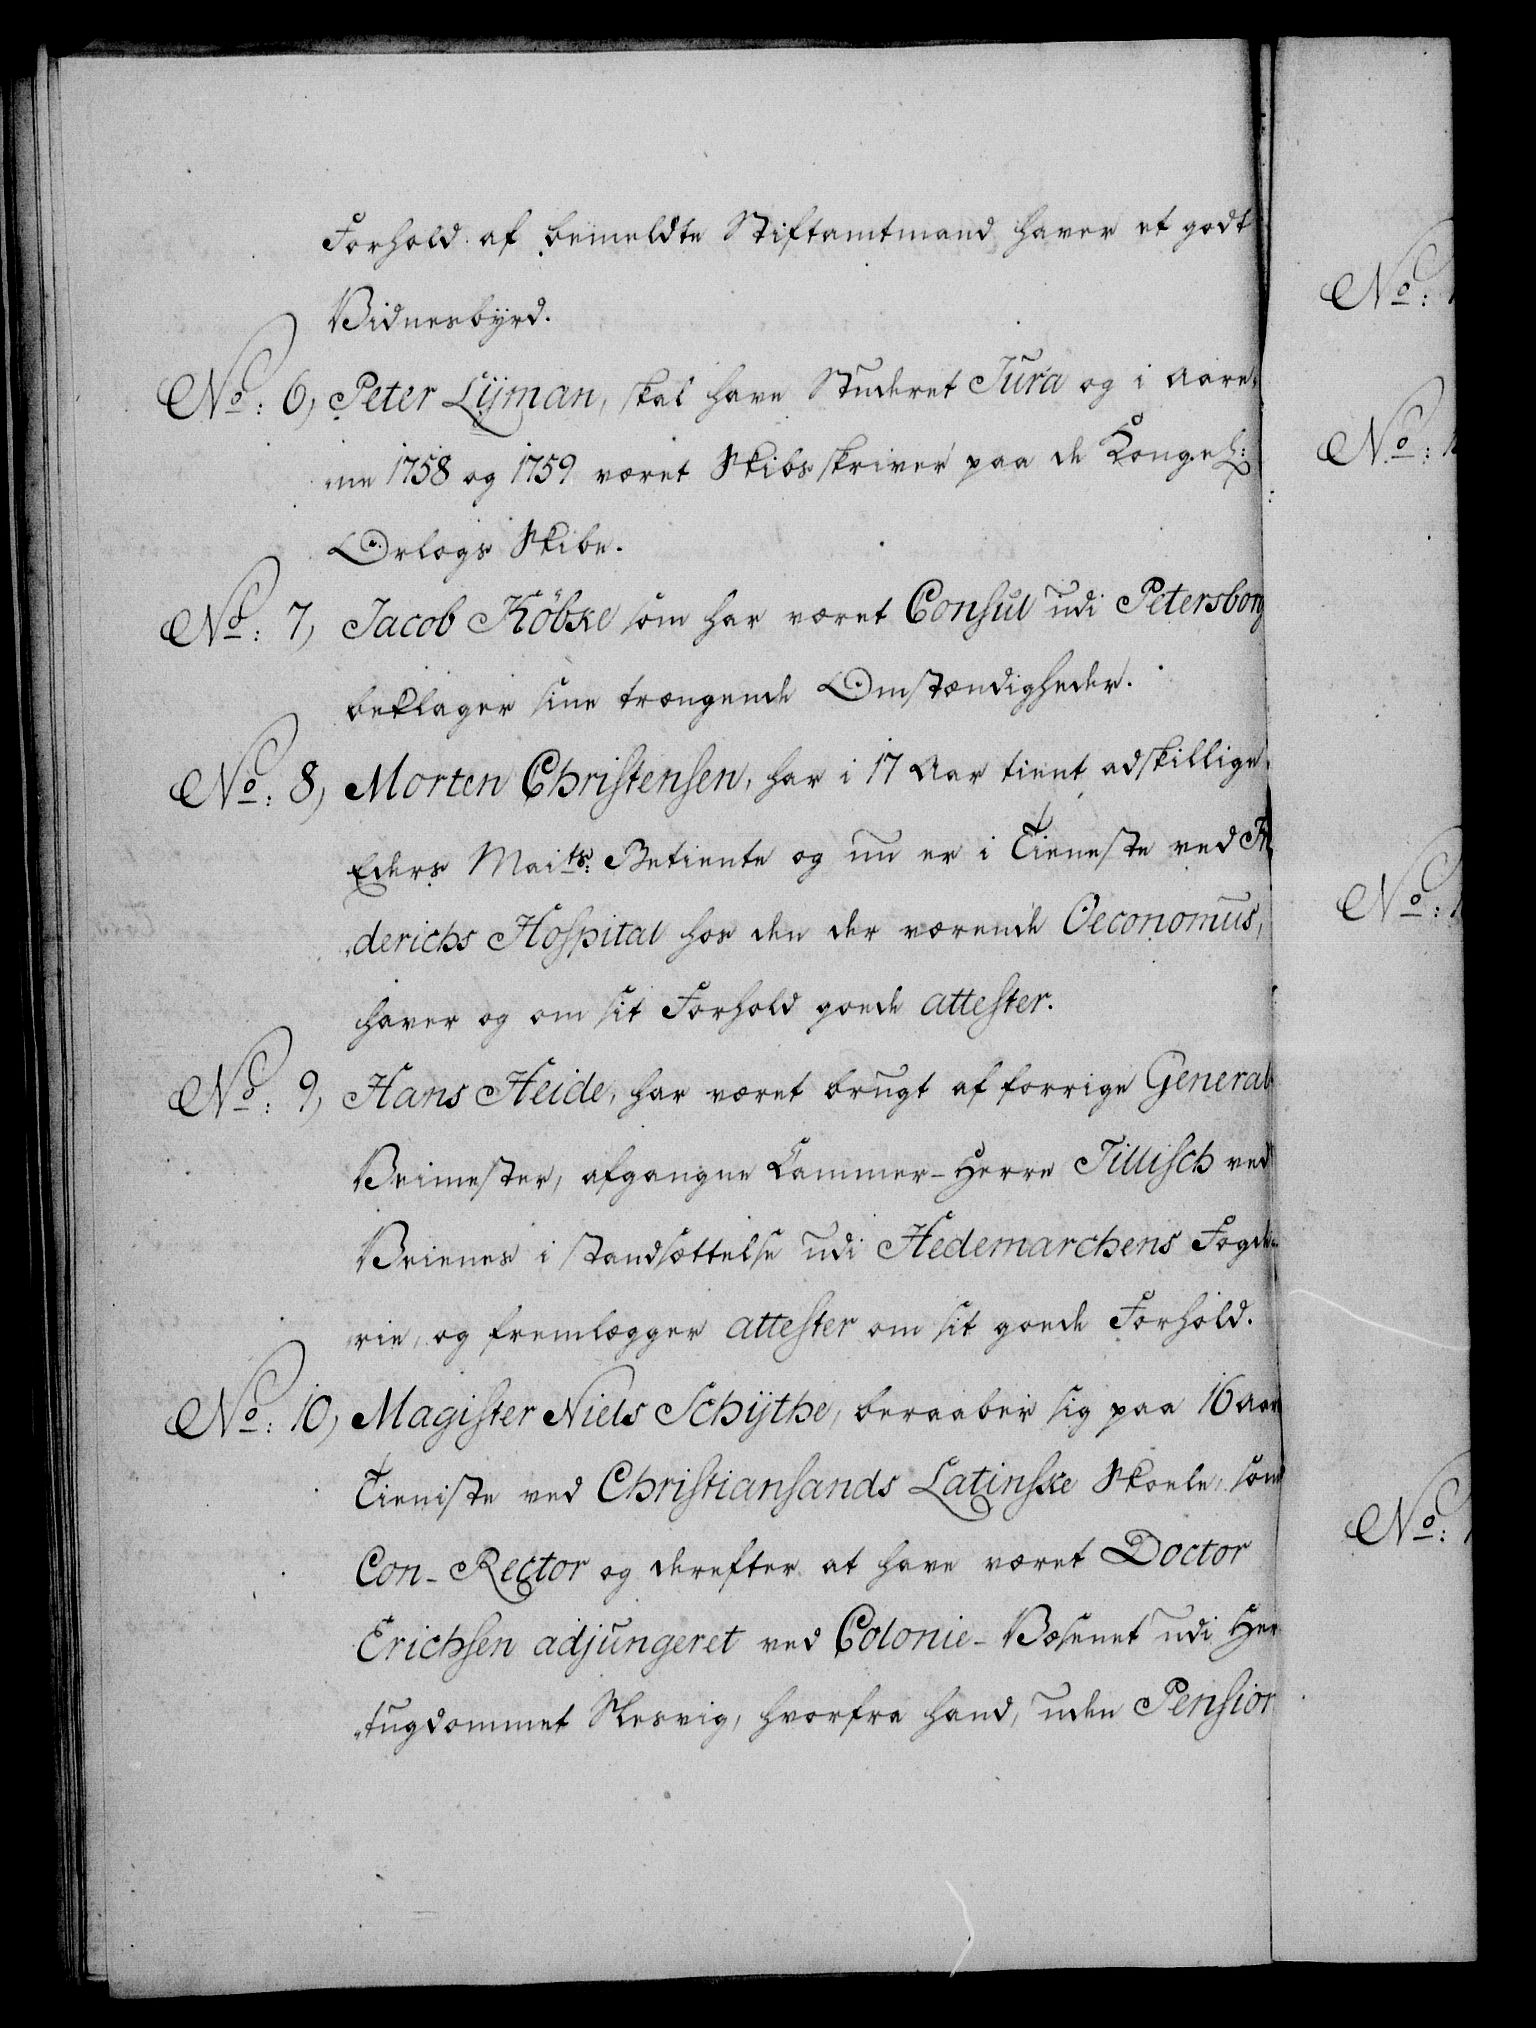 Forhold af bemeldte Stiftamtmand haver et godt
Vidnesbÿrd.
No: 6, Peter Lÿman, skal have Studeret Jura og i Aare-
ne 1758 og 1759 været Skibsskriver paa de Kongel:
Orlogs Skibe.
No: 7, Jacob Köbke som har været Consul udi Petersborg
beklager sine trængende Omstændigheder.
No: 8, Morten Christensen, har i 17 Aar tient adskillige
Eders Maits: Betiente og nu er i Tieneste ved Fri
derichs Hospital hos den der værende Oeconomus,
haver og om sit Forhold goede attester.
No: 9, Hans Heide, har været brugt af forrige General
Veimester, afgangne Cammer-Herre Tillisch ved
Veienes i standsættelse udi Hedemarchens Fogde-
rie, og fremlægger attester om sit goede Forhold.
No: 10, Magister Niels Schÿthe, beraaber sig paa 16 Aars
Tieniste ved Christiansands Latinske Skoele, som
Con-Rector og derefter at have været Doctor
Erichsen adjungeret ved Colonie-Væsenet udi Her
tugdommet Slesvig, hvorfra hand, uden Pension
No: 1
No: 1
No: 1
No: 1